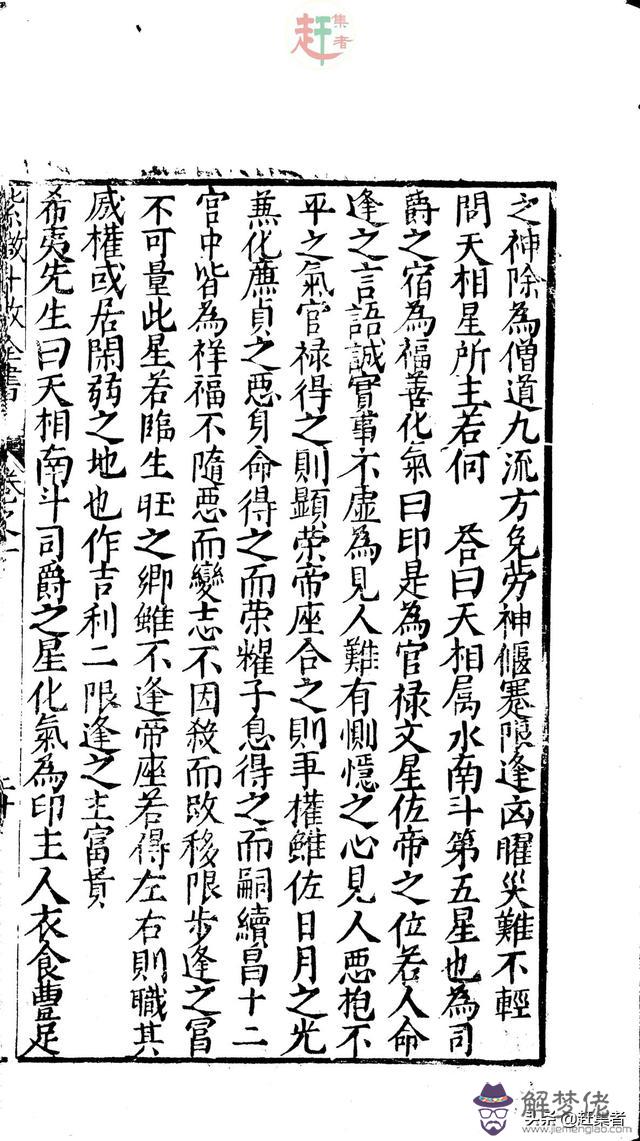 赶集者
之神除為僧道九流方免劳神偃蹇限逢凶曜災難不輕
問天相星所主若何 答曰天相属水南斗第五星也為司
爵之宿為福善化氣曰印是為官禄文星佐帝之位若人命
逢之言語誠實事不虛為見人難有惻隱之心見人惡抱不
平之氣官禄得之則顯荣帝座合之則爭權雖佐日月之光
蕪化廉貞之惡身命得之而荣耀子息得之而嗣續昌十二
宫中皆為祥福不隨惡而變志不因殺而改移限步逢之冨
不可量此星若臨生旺之鄉雖不逢帝座若得左右則職其
威權或居閑弱之地也作吉利二限逢之主富貴
希夷先生曰天相南斗司爵之星化氣為印主人衣食豊足
紫微斗数全書 卷之一 二十
解梦佬
头条@赶集者
www.jiemenglab.com